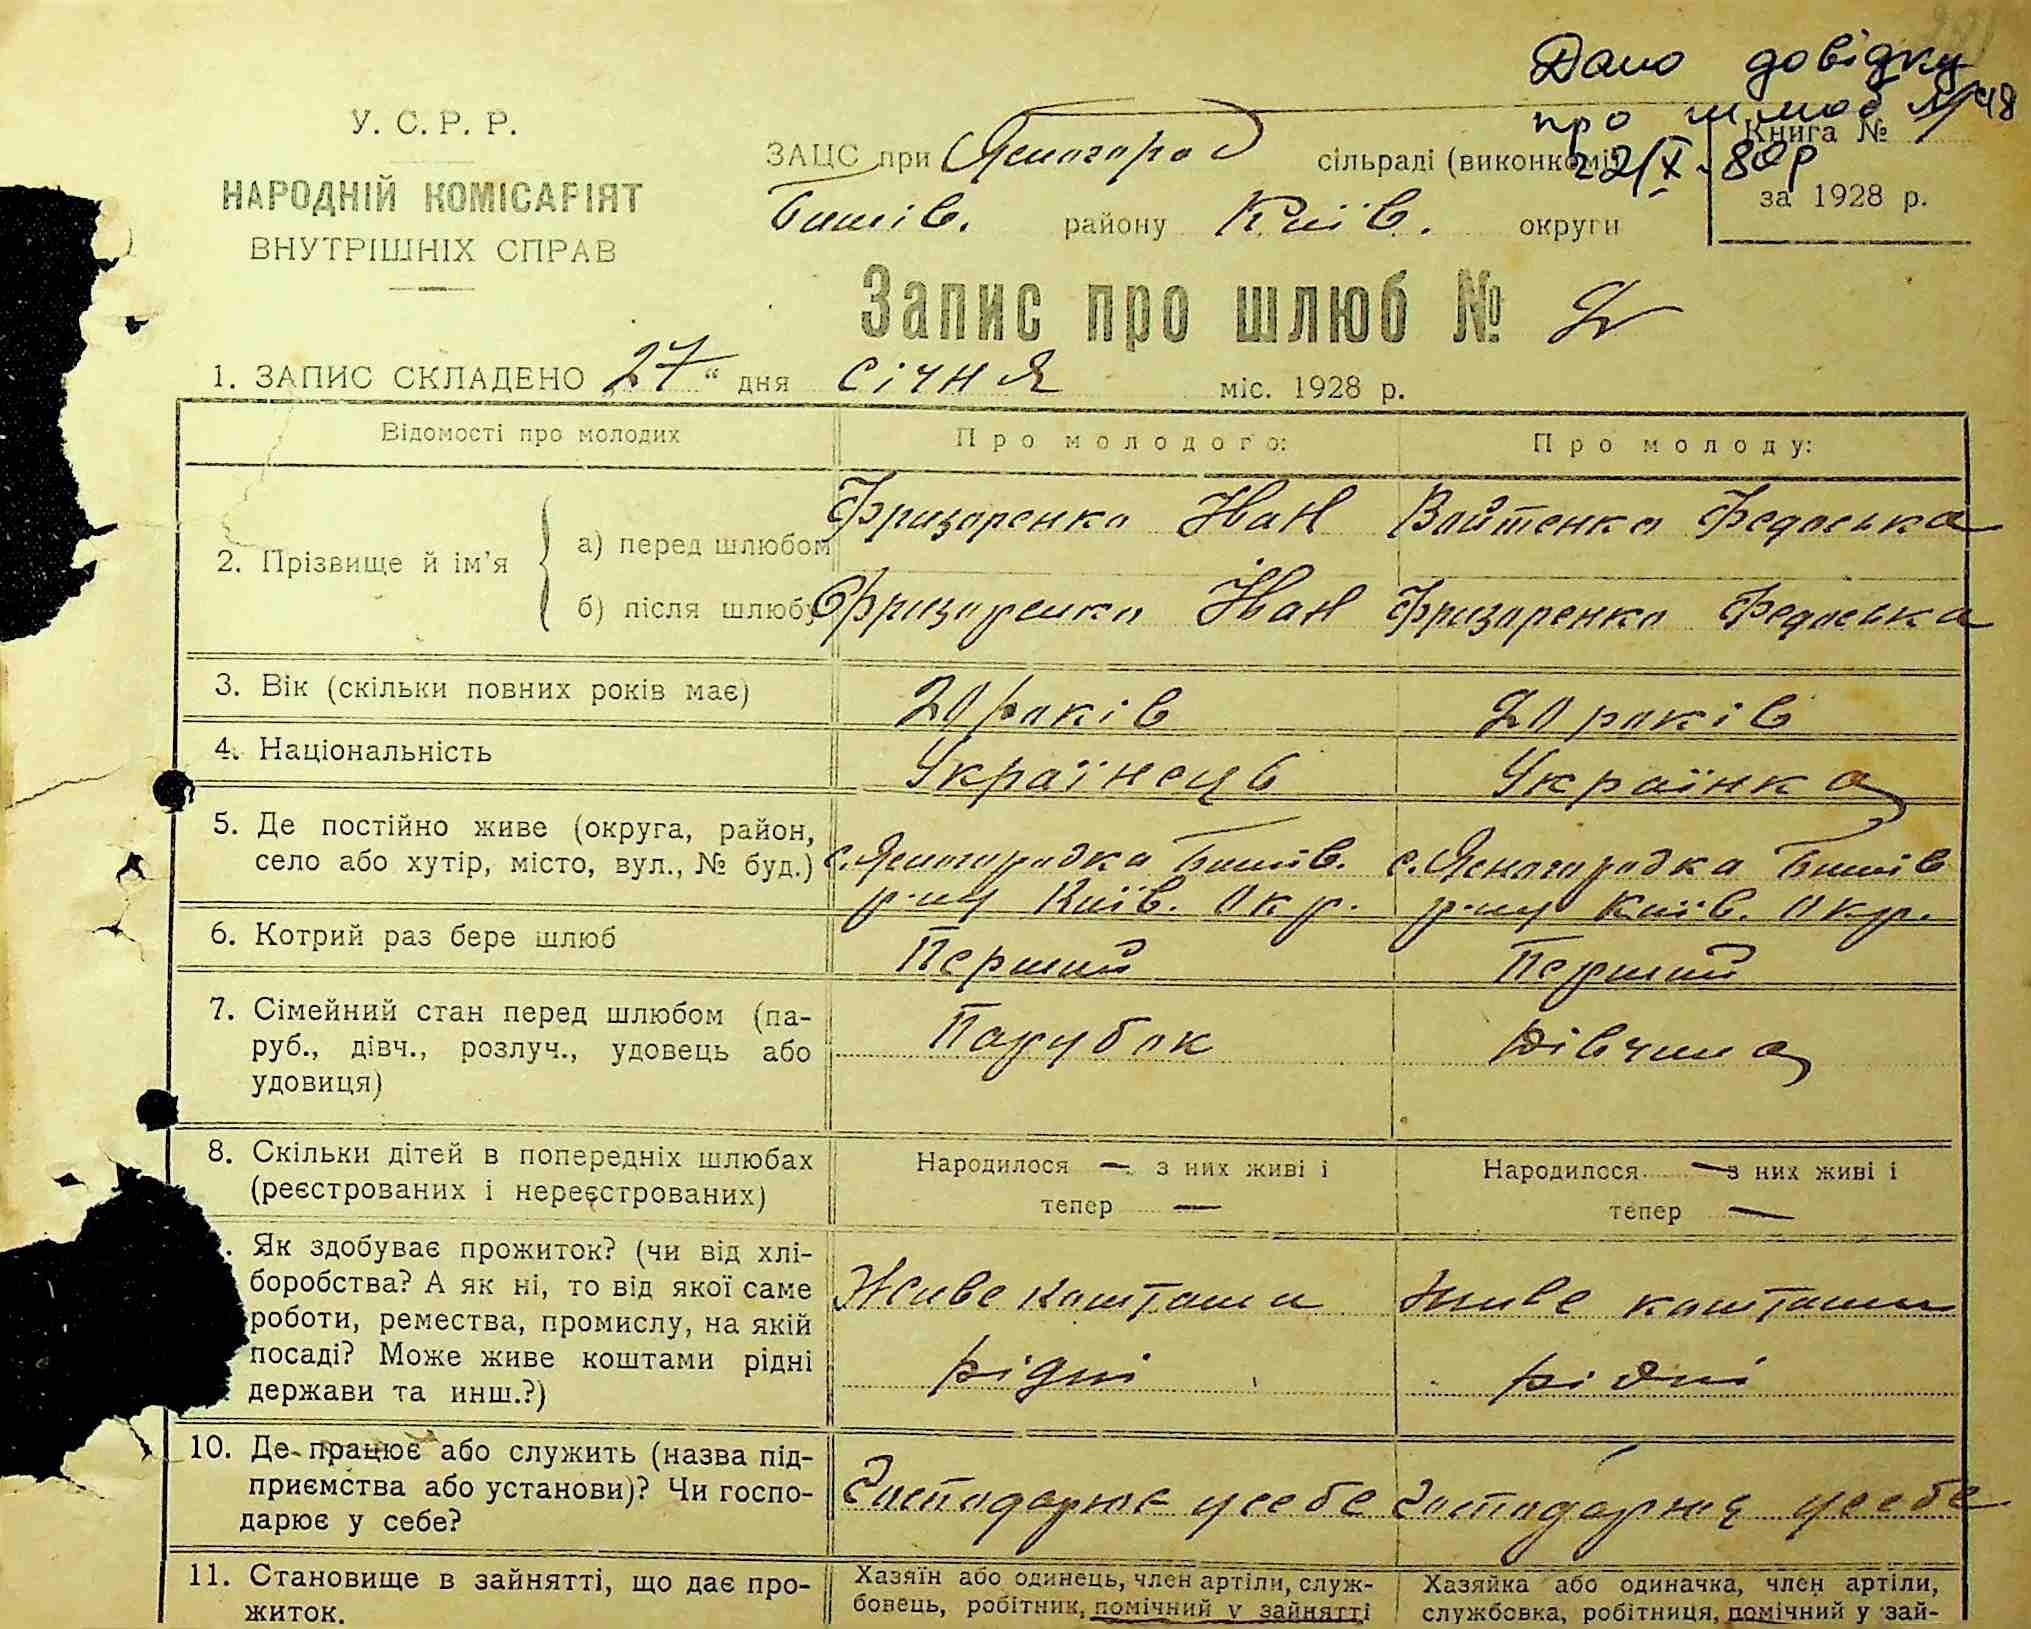 Дано довідку
про шлюб № 48
22/X-80р
У. С. Р. Р.
НАРОДНІЙ КОМІСАРІЯТ
ВНУТРІШНІХ СПРАВ
ЗАЦС при Ясногород сільраді (виконкомі)
Бишів. району Київ. округи
Книга №
за 1928 р.
Запис про шлюб № 2
1. ЗАПИС СКЛАДЕНО 27 " дня січня міс. 1928 р.
Відомості про молодих Про молодого: Про молоду:
2. Прізвище й ім'я
а) перед шлюбом Фризоренко Іван Войтенко Федоська
б) після шлюбу Фризоренко Іван Фризоренко Федоська
3. Вік (скільки повних років має) 20 років 20 років
4. Національність Українець Українка
5. Де постійно живе (округа, район, село або хутір, місто, вул., № буд.)
с. Ясногородка Бишів. с. Ясногородка Бишів
р-ну Київ. Окр. р-ну Київ. Окр.
6. Котрий раз бере шлюб Перший Перший
7. Сімейний стан перед шлюбом (па-
руб., дівч., розлуч., удовець або Парубок Дівчина
удовиця)
8. Скільки дітей в попередніх шлюбах Народилося — з них живі і Народилося — з них живі і
(реєстрованих і нереєстрованих) тепер — тепер —
. Як здобуває прожиток? (чи від хлі-
боробства? А як ні, то від якої саме Живе коштами Живе коштами
роботи, ремества, промислу, на якій
посаді? Може живе коштами рідні рідні рідні
держави та инш.?)
10. Де працює або служить (назва під-
приємства або установи)? Чи госпо- Господарює у себе господарює у себе
дарює у себе?
11. Становище в зайнятті, що дає про- Хазяїн або одинець, член артіли, служ- Хазяйка або одиначка, член артіли,
житок. бовець, робітник, помічний у зайнятті службовка, робітниця, помічний у зай-